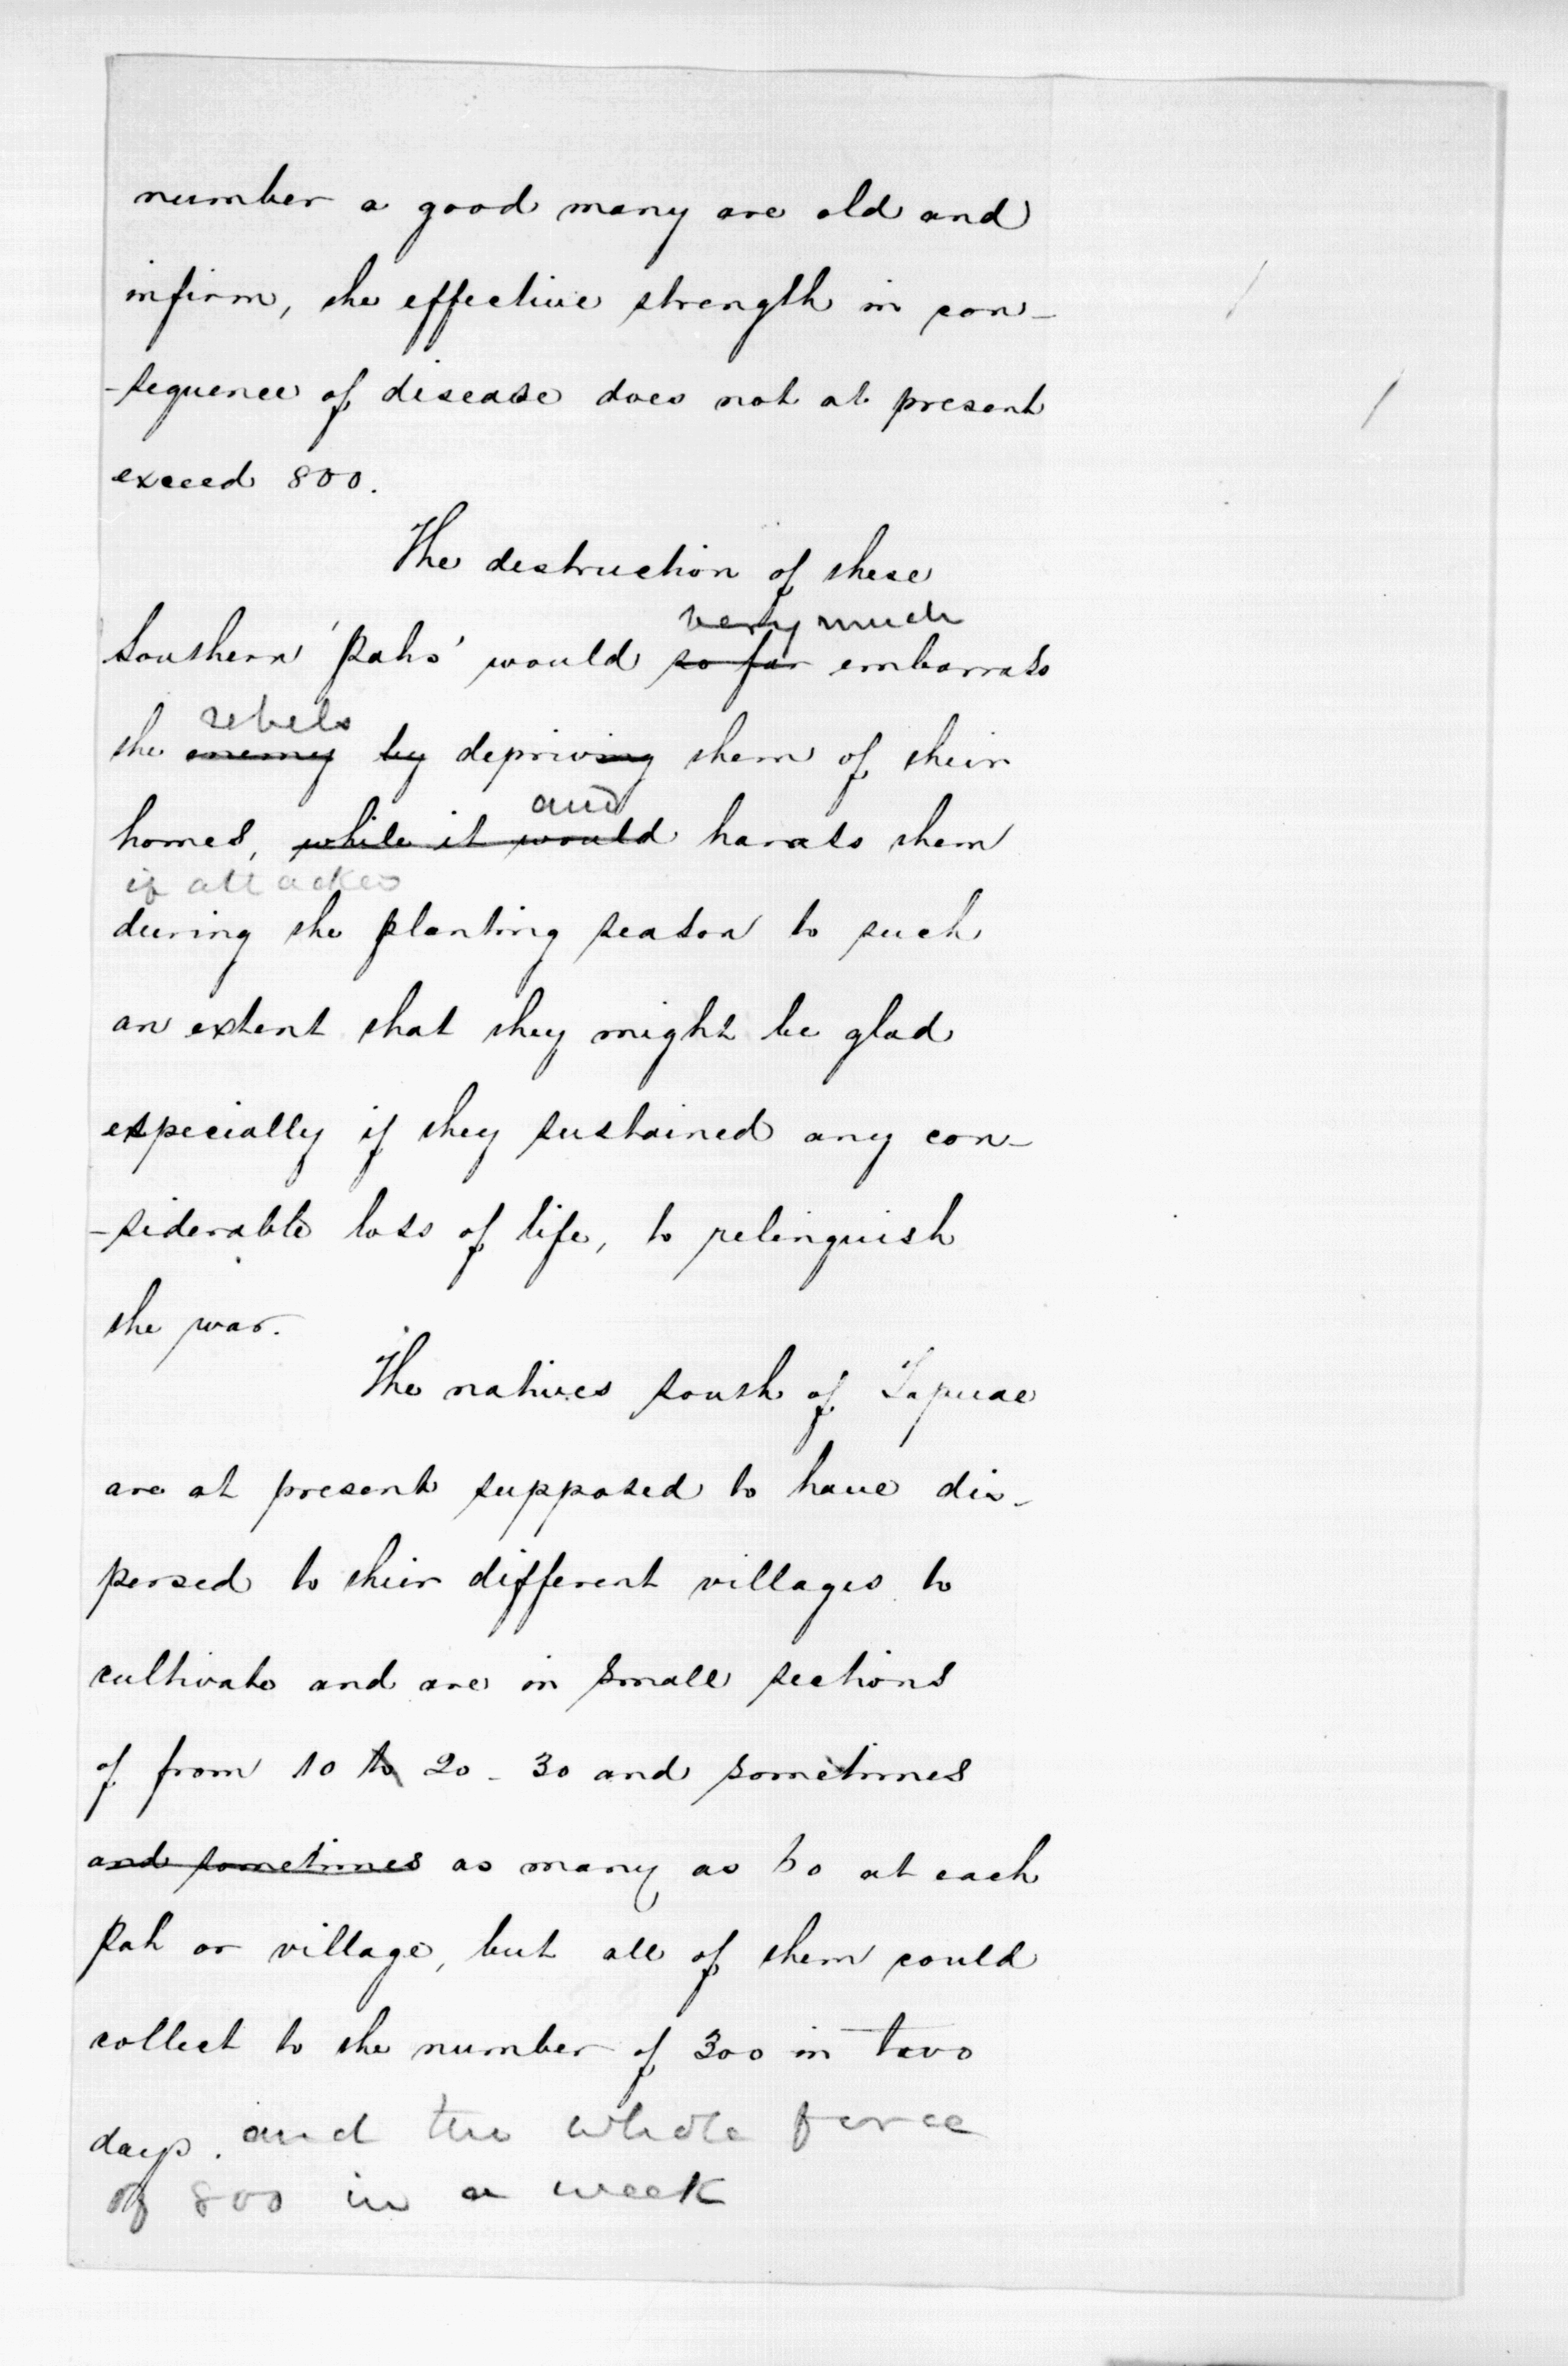 number a good many are old and
infirm, the effective strength in con-
-sequence of disease does not at present
exceed 800.
The destruction of these
very much
Southern 'Pahs' would so far embarrass
rebels
the enemy by depriving them of their
and
homes, while it would harass them
if attacked
during the planting season to such
an extent that they might be glad
especially if they sustained any con-
-siderable loss of life, to relinquish
the war.
The natives south of Tapuae
are at present supposed to have dis-
persed to their different villages to
cultivate and are in small sections
of from 10 to 20 - 30 and sometimes
and sometimes as many as 60 at each
Pah or village, but all of them could
collect to the number of 300 in two
days. and the whole force
of 800 in a week